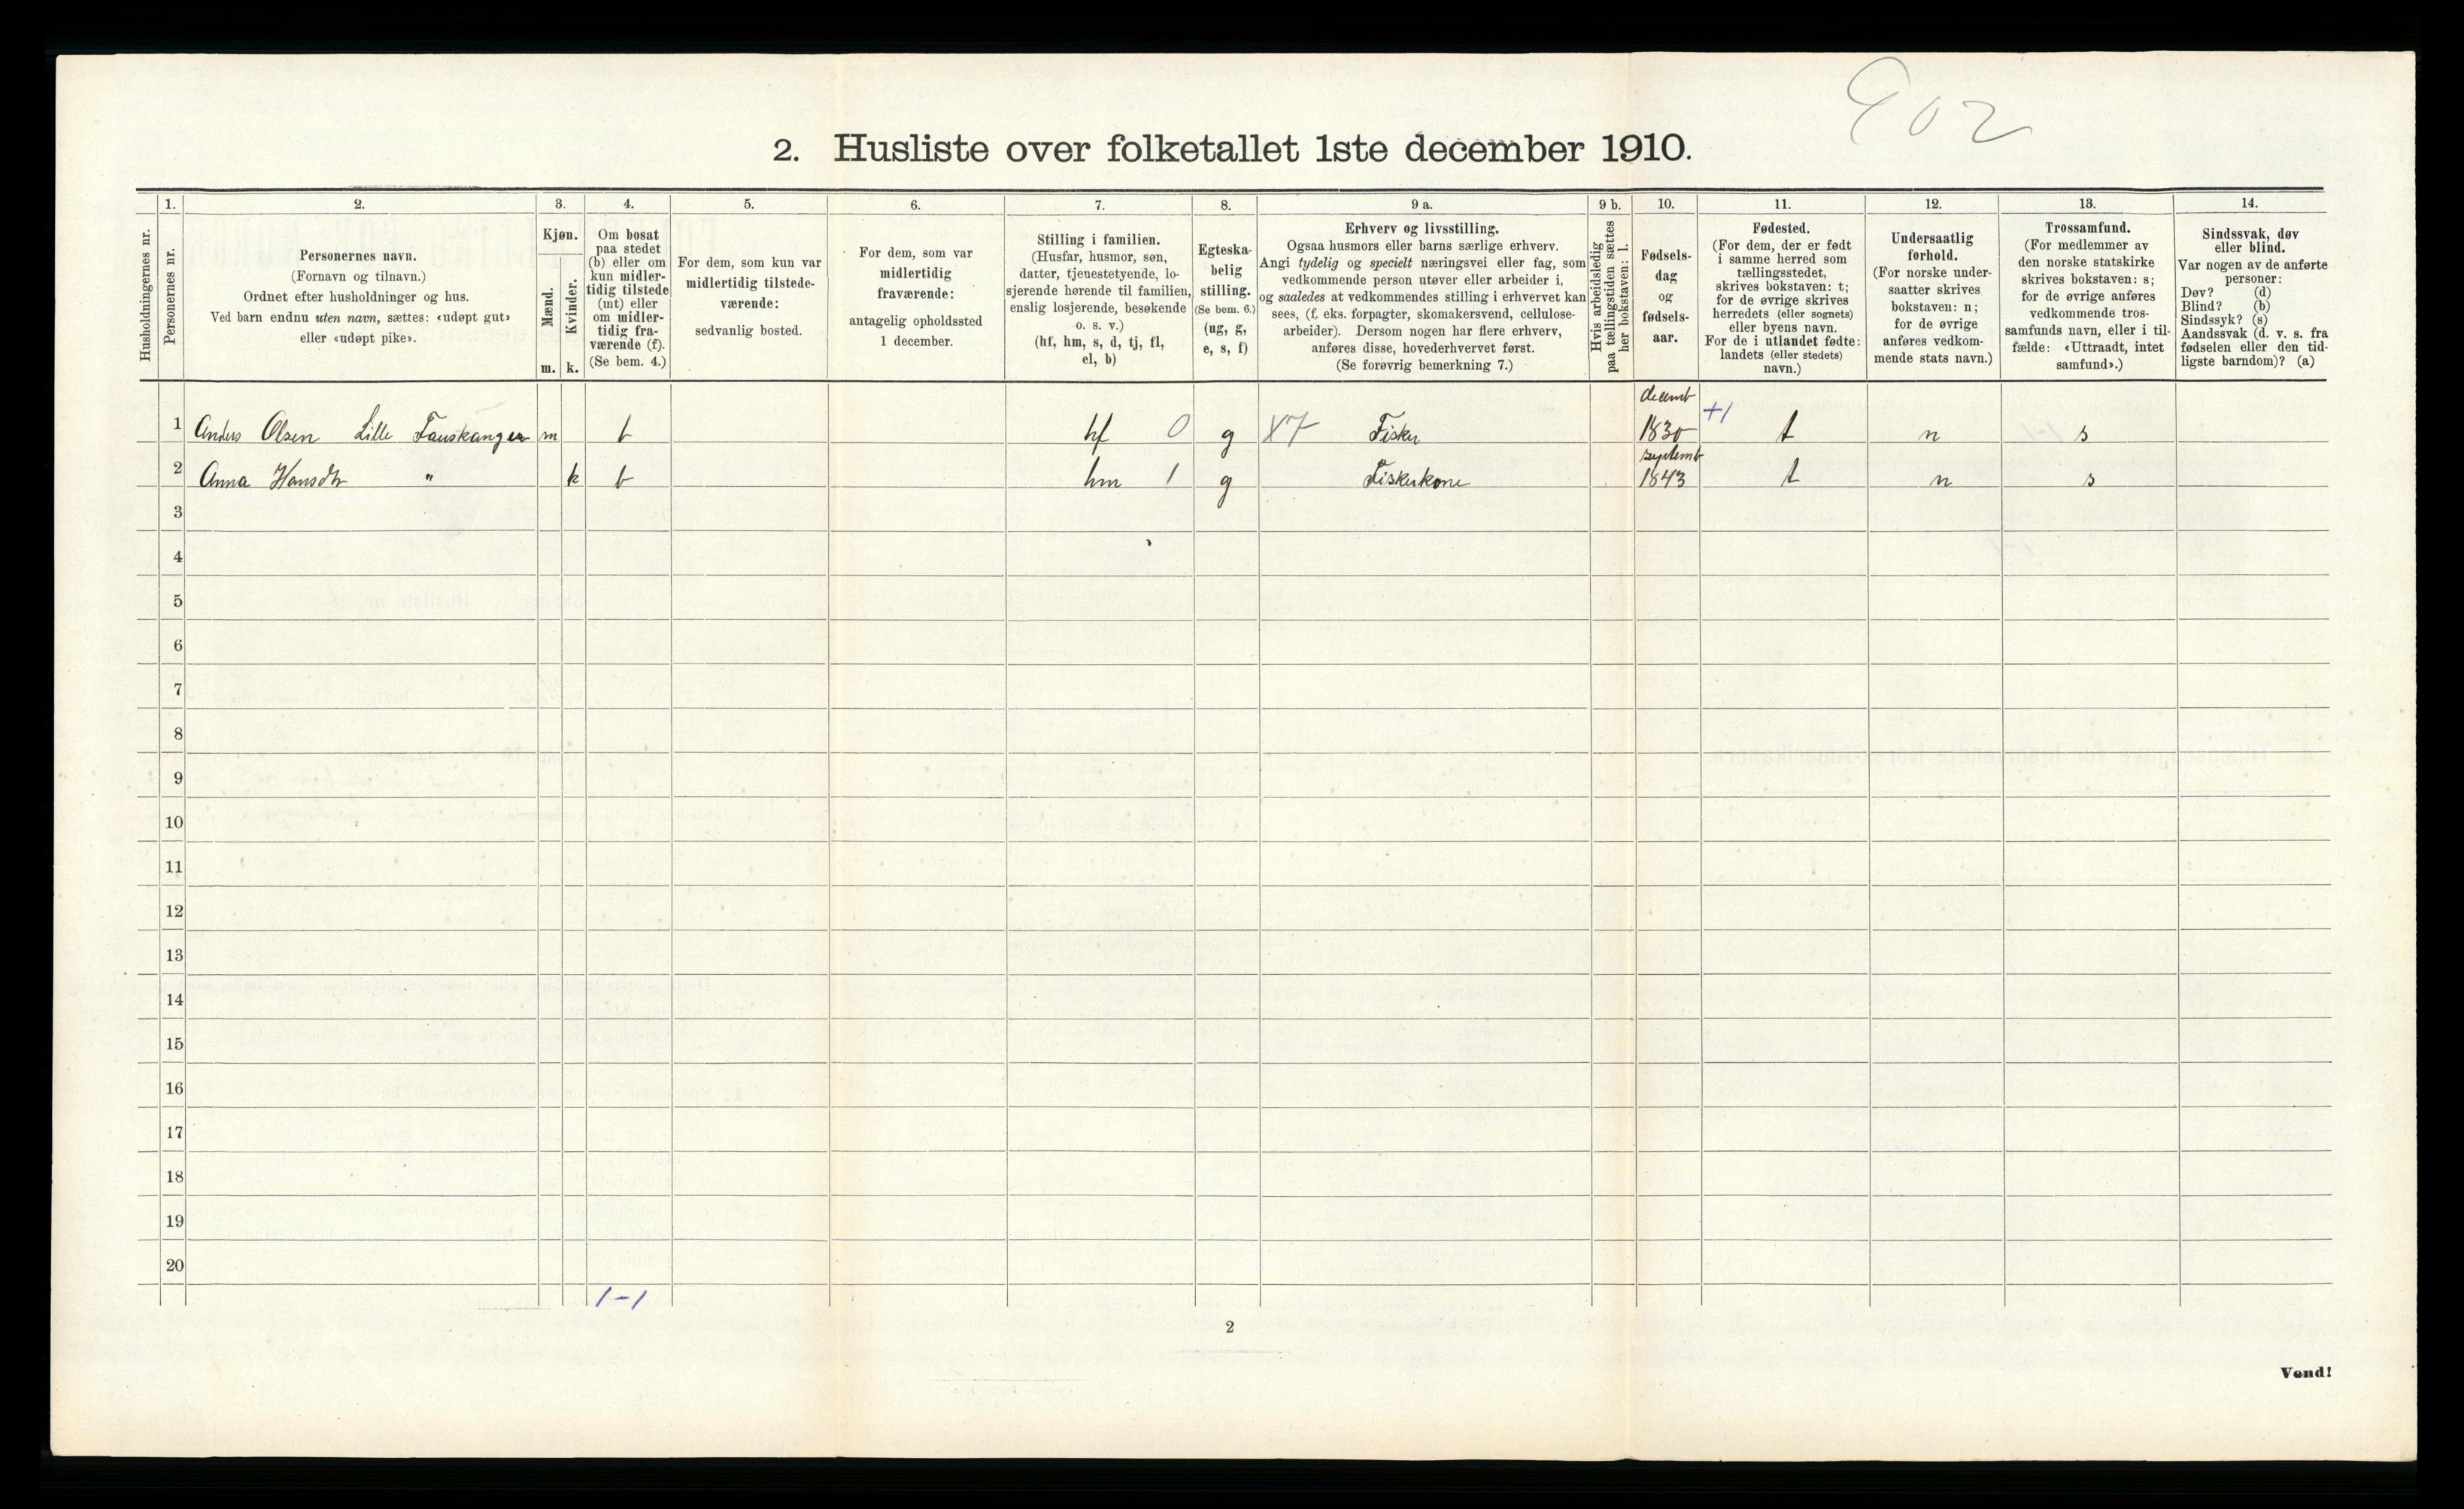 902
2. Husliste over folketallet 1ste december 1910.
1. 2. 3. 4. 5. 6. 7. 8. 9 a. 9 b. 10. 11. 12. 13. 14.
Husholdningernes nr.
Personernes nr.
Personernes navn.
(Fornavn og tilnavn.)
Ordnet efter husholdninger og hus.
Ved barn endnu uten navn, sættes: «udøpt gut»
eller «udøpt pike».
Kjøn.
Mænd.
Kvinder.
m. k.
Om bosat
paa stedet
(b) eller om
kun midler-
tidig tilstede
(mt) eller
om midler-
tidig fra-
værende (f).
(Se bem. 4.)
For dem, som kun var
midlertidig tilstede-
værende:
sedvanlig bosted.
For dem, som var
midlertidig
fraværende:
antagelig opholdssted
1 december.
Stilling i familien.
(Husfar, husmor, søn,
datter, tjenestetyende, lo-
sjerende hørende til familien,
enslig losjerende, besøkende
o. s. v.)
(hf, hm, s, d, tj, fl,
el, b)
Egteska-
belig
stilling.
(Se bem. 6.)
(ug, g,
e, s, f)
Erhverv og livsstilling.
Ogsaa husmors eller barns særlige erhverv.
Angi tydelig og specielt næringsvei eller fag, som
vedkommende person utøver eller arbeider i,
og saaledes at vedkommendes stilling i erhvervet kan
sees, (f. eks. forpagter, skomakersvend, cellulose-
arbeider). Dersom nogen har flere erhverv,
anføres disse, hovederhvervet først.
(Se forøvrig bemerkning 7.)
Hvis arbeidsledig
paa tællingstiden sættes
her bokstaven: l.
Fødsels-
dag
og
fødsels-
aar.
Fødested.
(For dem, der er født
i samme herred som
tællingsstedet,
skrives bokstaven: t;
for de øvrige skrives
herredets (eller sognets)
eller byens navn.
For de i utlandet fødte:
landets (eller stedets)
navn.)
Undersaatlig
forhold.
(For norske under-
saatter skrives
bokstaven: n;
for de øvrige
anføres vedkom-
mende stats navn.)
Trossamfund.
(For medlemmer av
den norske statskirke
skrives bokstaven: s;
for de øvrige anføres
vedkommende tros-
samfunds navn, eller i til-
fælde: «Uttraadt, intet
samfund».)
Sindssvak, døv
eller blind.
Var nogen av de anførte
personer:
Døv? (d)
Blind? (b)
Sindssyk? (s)
Aandssvak (d. v. s. fra
fødselen eller den tid-
ligste barndom)? (a)
decemb
1 Anders Olsen Lille Fauskanger m b hf 0 g X7 Fisker 1830 +1 t n s
septemb
2 Anna Hansdtr " k b hm 1 g Fiskerkone 1843 t n s
3
4
5
6
7
8
9
10
11
12
13
14
15
16
17
18
19
20
1-1
2
Vend!